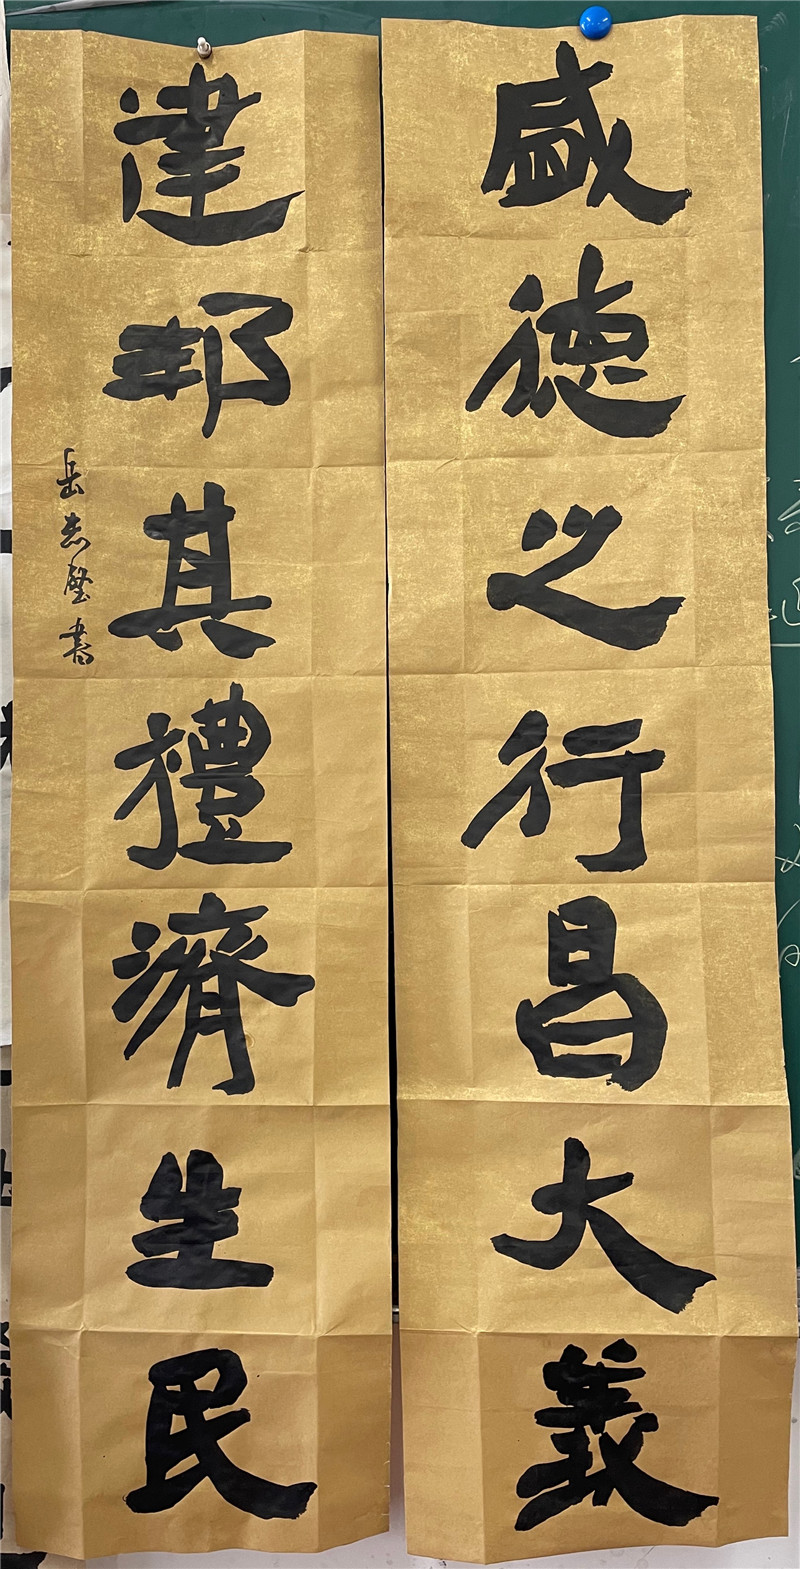 盛德之行昌大義
建邦其禮濟生民
岳志璧書